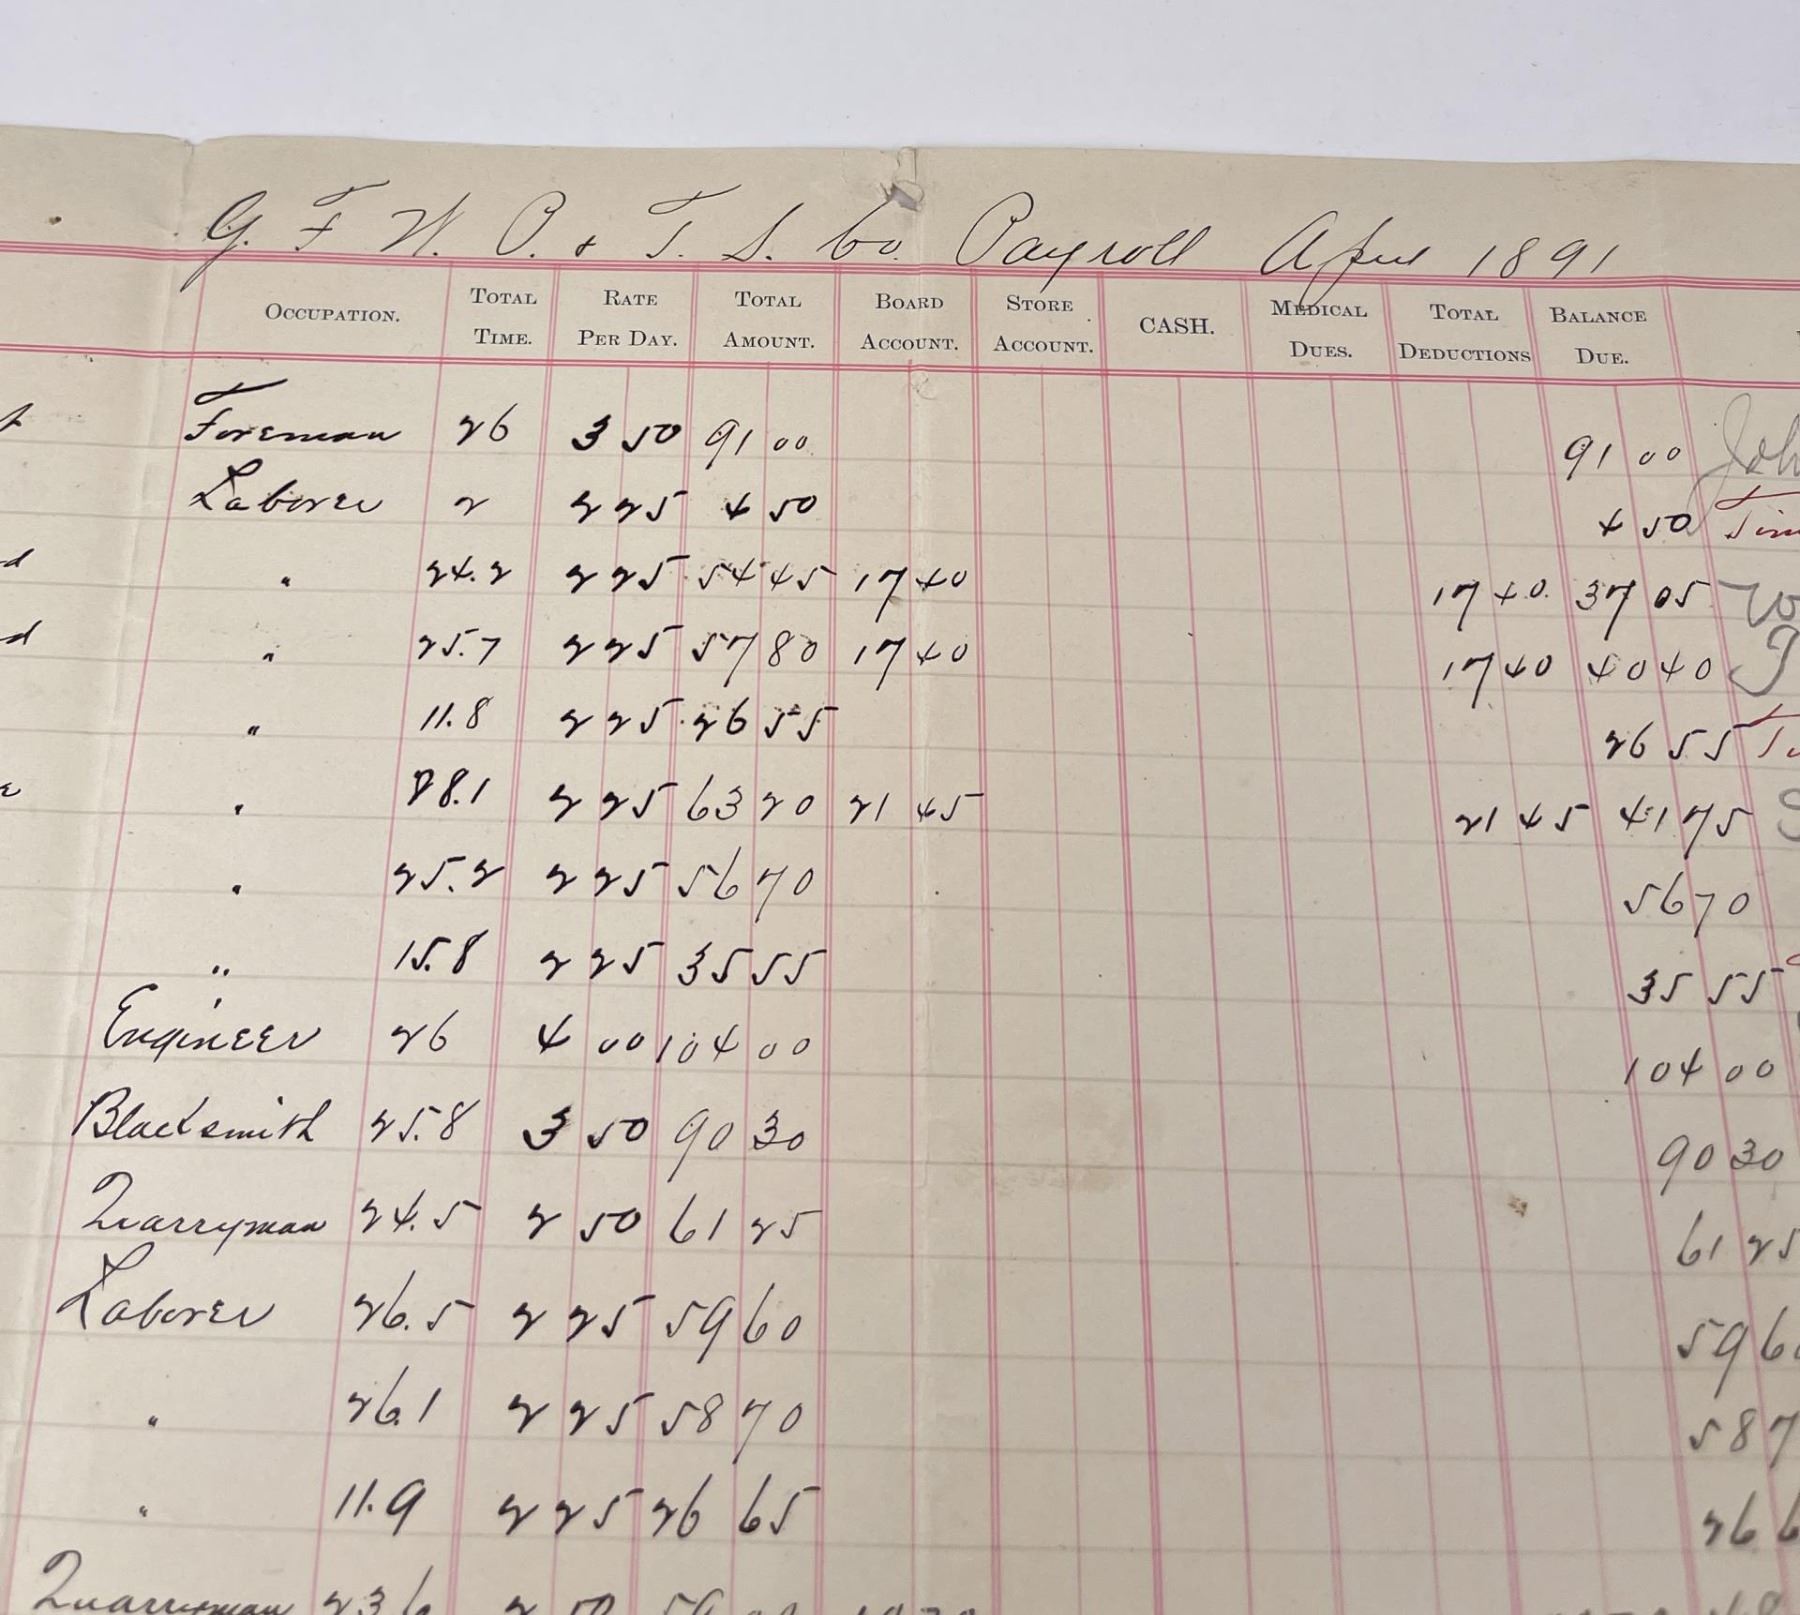 G. F. W. P. & T. S. Co. Payroll April 1891
OCCUPATION. TOTAL TIME. RATE PER DAY. TOTAL AMOUNT. BOARD ACCOUNT. STORE ACCOUNT. CASH. MEDICAL DUES. TOTAL DEDUCTIONS BALANCE DUE.
Foreman 26 3 50 91 00 91 00 Joh
Laborer 2 2 25 4 50 4 50 Tim
d " 24.2 2 25 54 45 17 40 17 40 37 05
d " 25.7 2 25 57 80 17 40 17 40 40 40
" 11.8 2 25 26 55 26 55
e " 28.1 2 25 63 20 21 45 21 45 41 75
" 25.2 2 25 56 70 56 70
" 15.8 2 25 35 55 35 55
Engineer 26 4 00 104 00 104 00
Blacksmith 25.8 3 50 90 30 90 30
Quarryman 24.5 2 50 61 25 61 25
Laborer 26.5 2 25 59 60 59 6
" 26.1 2 25 58 70 58 7
" 11.9 2 25 26 65 26 6
Quarryman 23 6 2 50 59